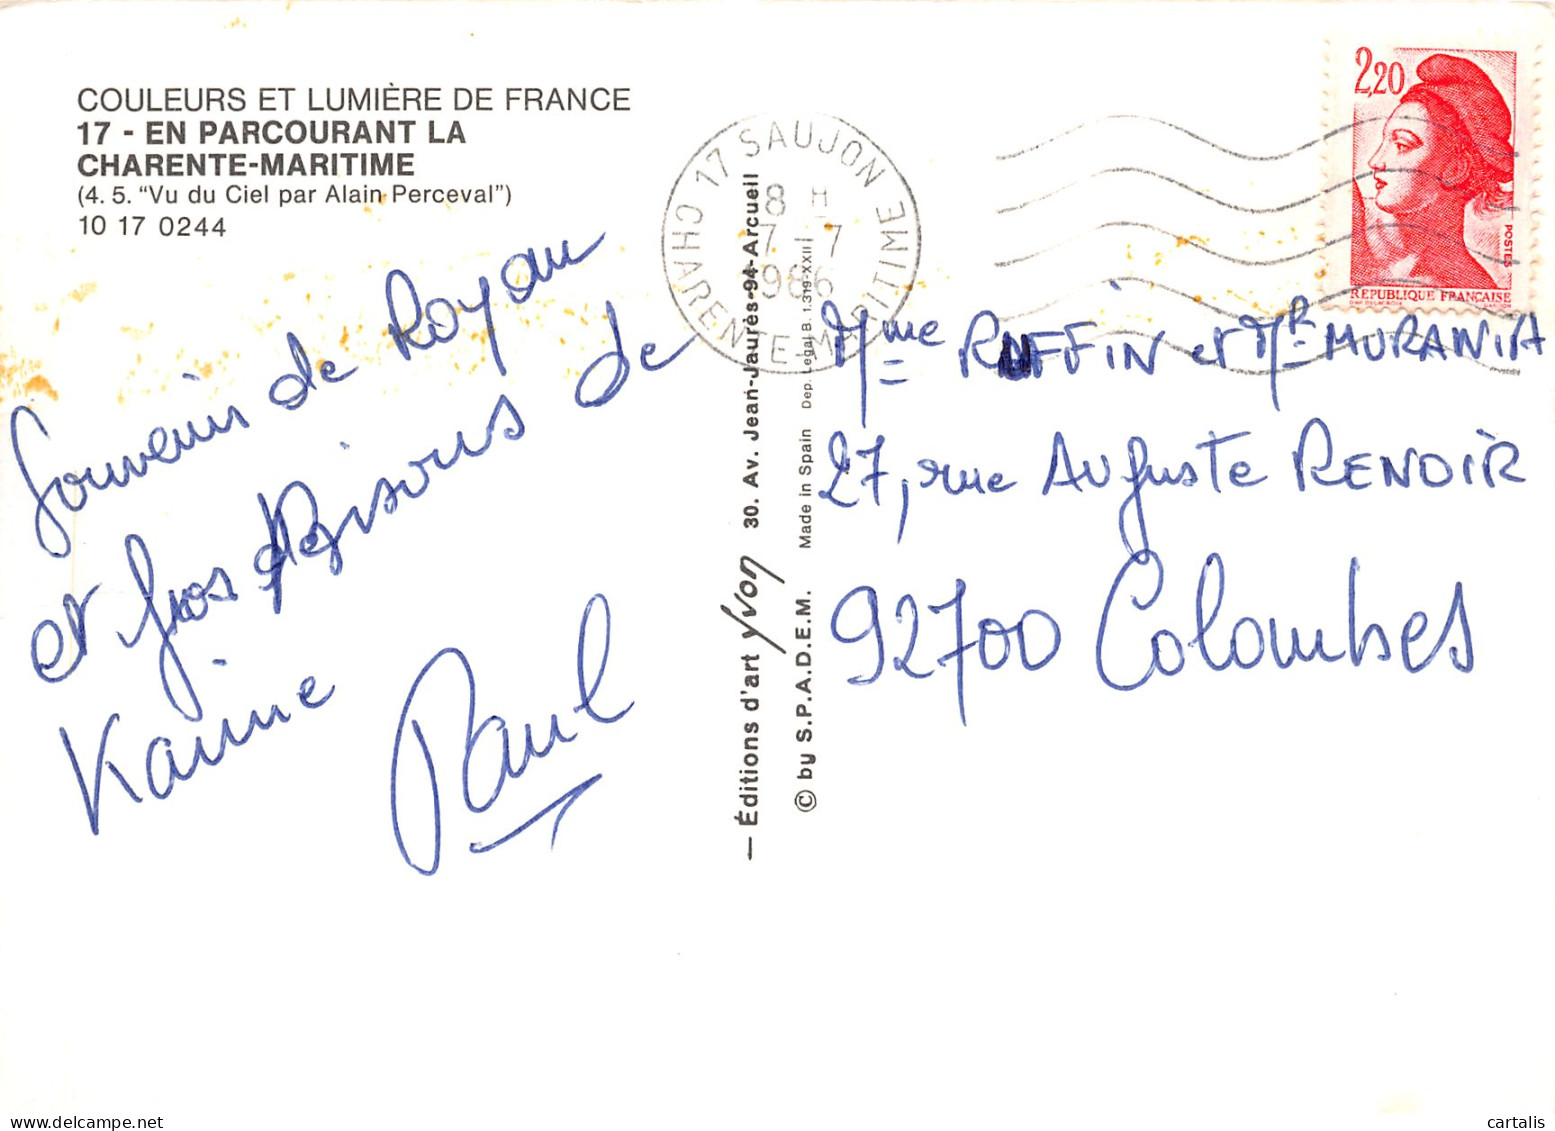 COULEURS ET LUMIÈRE DE FRANCE
17 - EN PARCOURANT LA
CHARENTE-MARITIME
(4. 5. “Vu du Ciel par Alain Perceval”)
10 17 0244
Souvenirs de Royan
et gros Bisous de
Karine
Paul
17 SAUJON
CHARENTE-MARITIME
8 H
7 - 7
1986
2,20
POSTES
REPUBLIQUE FRANÇAISE
— Éditions d'art yvon 30. Av. Jean-Jaurès-94-Arcueil
© by S.P.A.D.E.M. Made in Spain Dep. Legal B. 1.319-XXIII
Mme RUFFIN et Mr MURANIA
27, rue Auguste RENOIR
92700 Colombes
cartalis